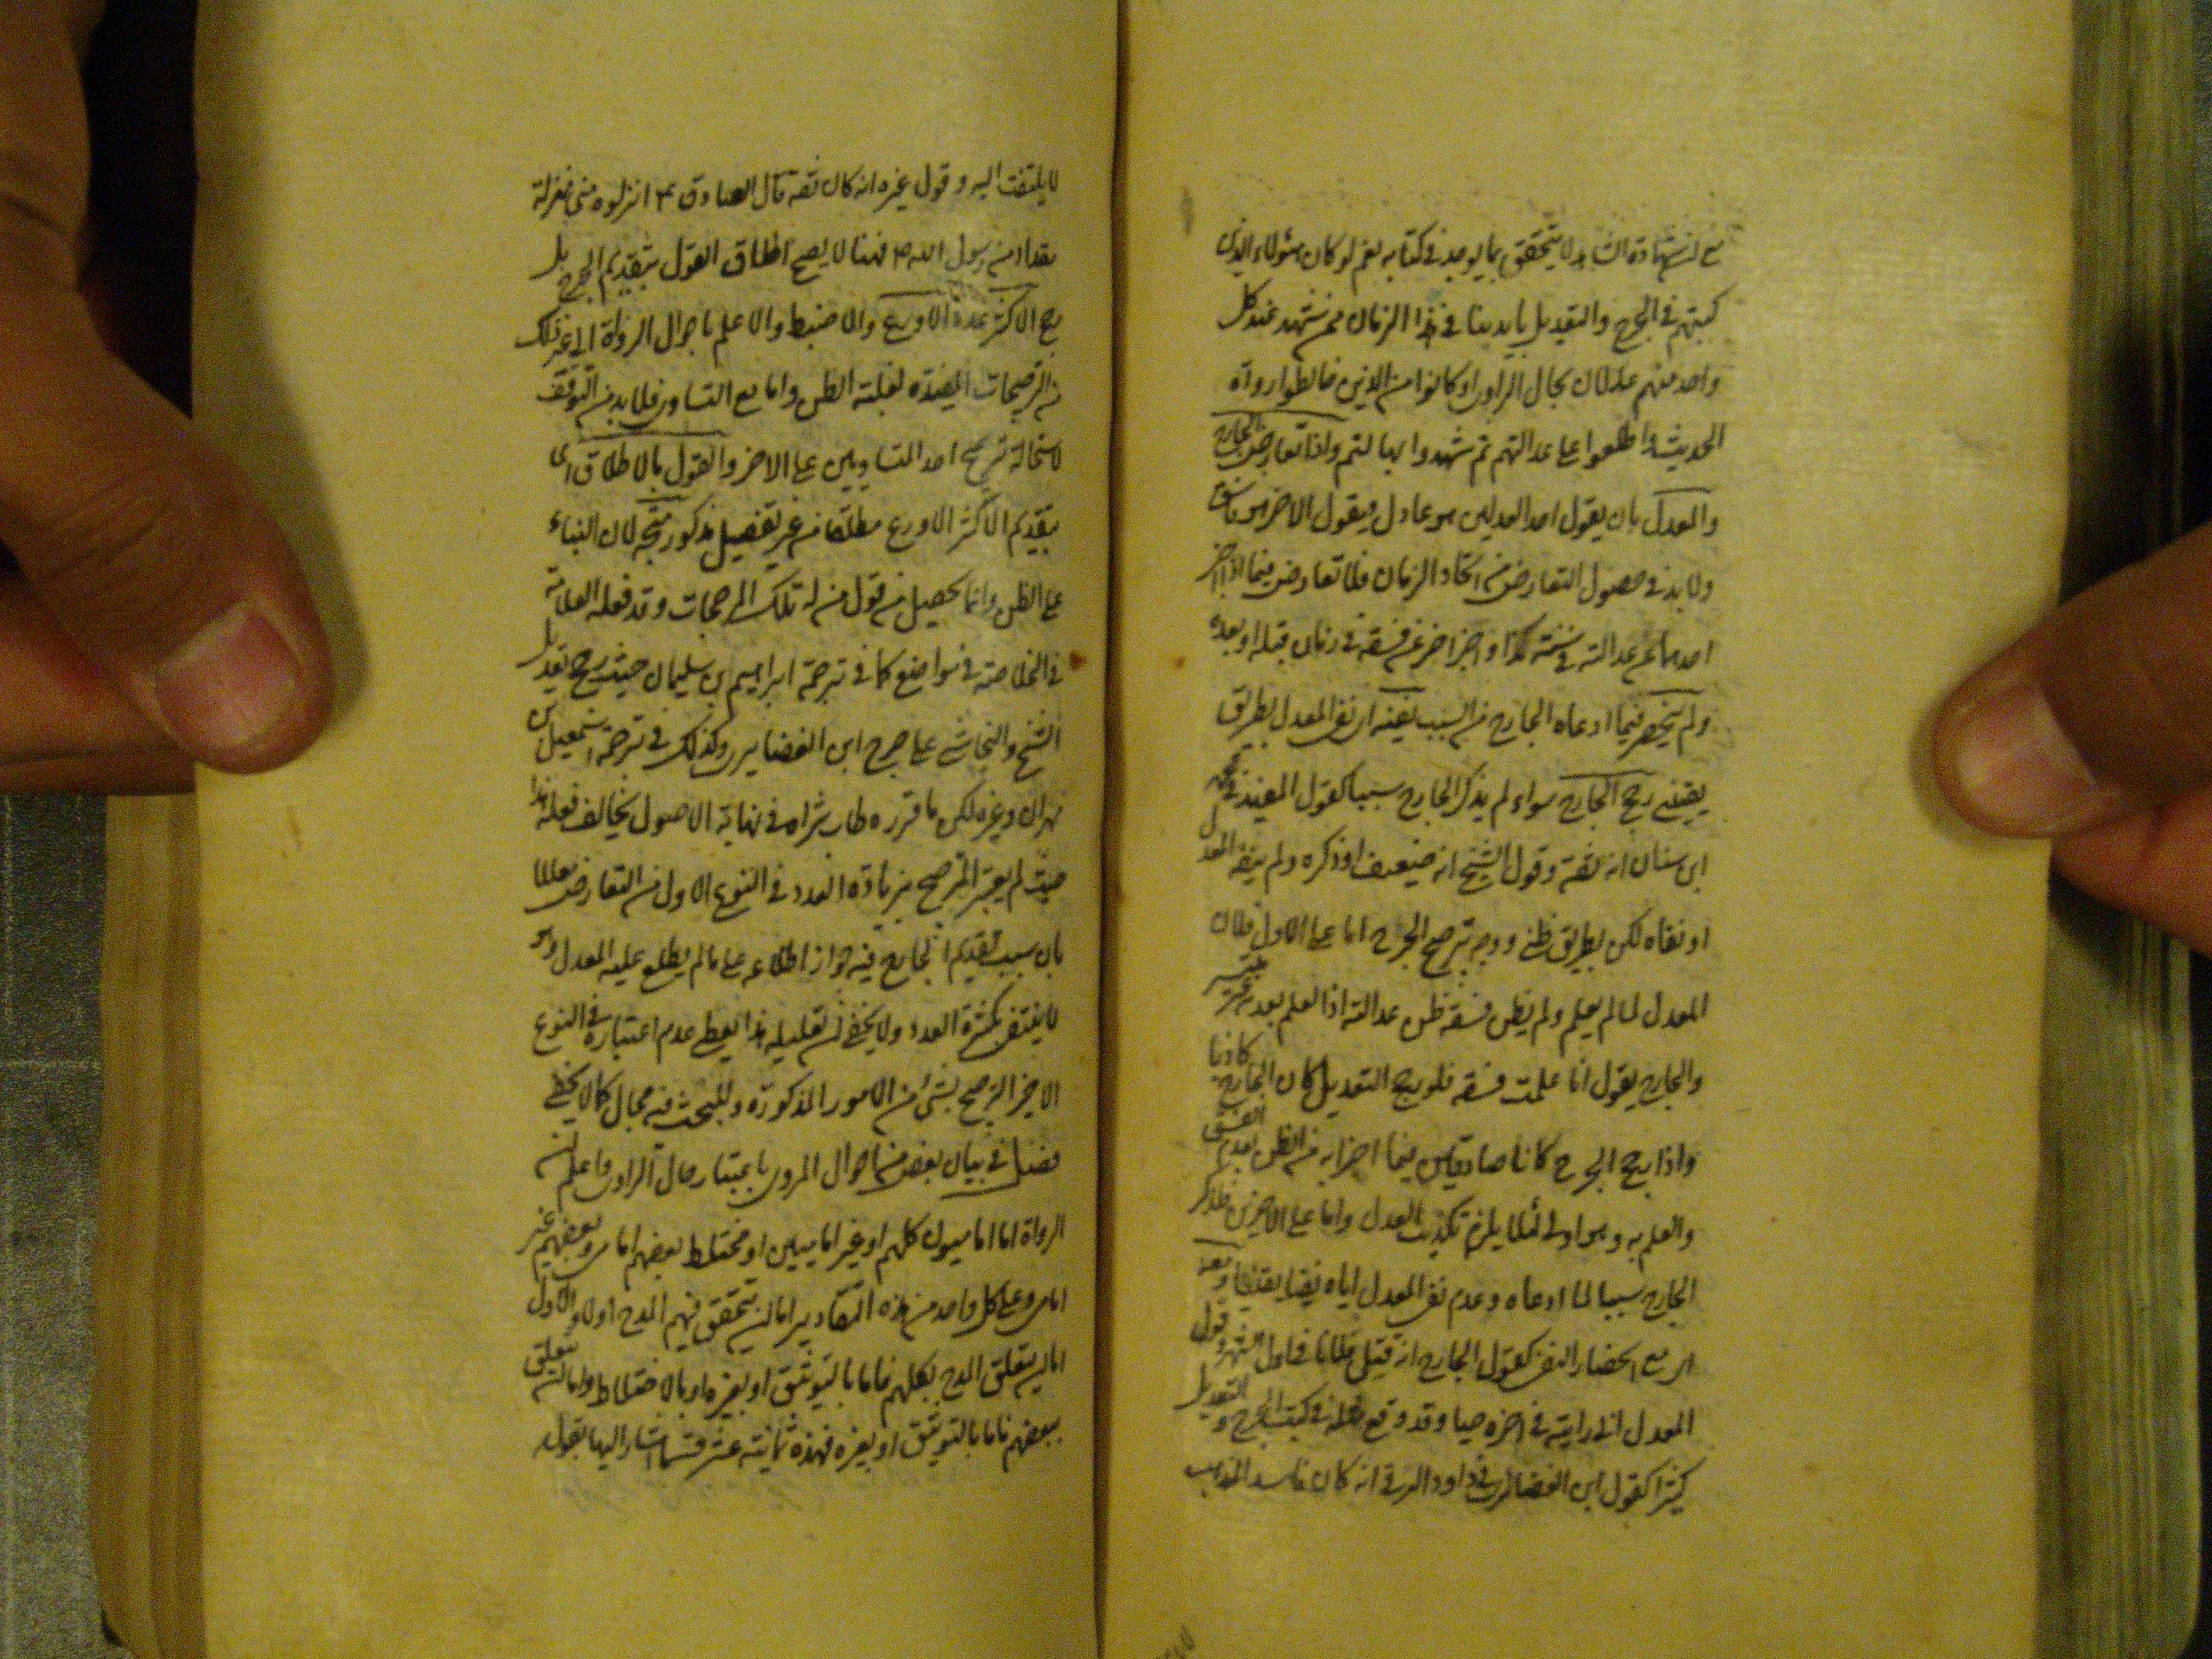 مع ان شهادة الشاهد لا يتحقق بما يوجد في كتابه نعم لو كان هؤلاء الذين
كتبهم في الجرح والتعديل بايدينا في هذا الزمان ممن شهد عند كل
واحد منهم عدلان بحال الراوي او كانوا من الذين خالطوا رواة
الحديث واطلعوا على عدالتهم ثم شهدوا بها لتم واذا تعارض الجارح
والمعدل بان يقول احد العدلين هو عادل ويقول الاخر هو فاسق
ولا بد في حصول التعارض من اتحاد الزمان فلا تعارض فيما اذا اخبر
احدهما عن عدالته في سنة كذا واخبر اخر عن فسقه في زمان قبله او بعده
ولم ينحصر فيما ادعاه الجارح من السبب نفيه اي نفي المعدل بطريق
يقيني رجح الجارح سواء لم يذكر الجارح سببا كقول المفيد في محمد
ابن سنان انه ثقة وقول الشيخ انه ضعيف او ذكره ولم ينفه المعدل
او نفاه لكن بطريق ظني ووجه ترجيح الجرح اما على الاول فلان
المعدل لما لم يعلم ولم يظن فسقه ظن عدالته اذ العلم بعدمه عسير
والجارح يقول انا علمت فسقه فلو رجح التعديل كان الجارح كاذبا
واذا رجح الجرح كانا صادقين فيما اخبرا به من الظن بعدم الفسق
والعلم به وهو اولى لئلا يلزم تكذيب العدل واما على الاخيرين فلذكر
الجارح سببا لما ادعاه وعدم نفي المعدل اياه نفيا يقينيا ومعه
اي مع انحصار النفي كقول الجارح انه قتل فلانا في اول الشهر وقول
المعدل اني رايته في اخره حيا وقد وقع مثله في كتب الجرح والتعديل
كثيرا كقول ابن الغضائري في داود الرقي انه كان فاسد المذهب
لا يلتفت اليه وقول غيره انه كان ثقة قال الصادق ع انزلوه مني منزلة
مقداد من رسول الله ص فهنا لا يصح اطلاق القول بتقديم الجرح بل
يرجح الاكثر عددا الاورع والاضبط والاعلم باحوال الرواة الى غير ذلك
من الترجيحات المفيدة لغلبة الظن واما مع التساوي فلا بد من التوقف
لاستحالة ترجيح احد المتساويين على الاخر والقول بالاطلاق اي
بتقديم الاكثر الاورع مطلقا من غير تفصيل مذكور متجه لان البناء
على الظن وانما يحصل من قول من له تلك المرجحات وقد فعله العلامة
في الخلاصة في مواضع كما في ترجمة ابراهيم بن سليمان حيث رجح تعديل
الشيخ والنجاشي على جرح ابن الغضايري وكذلك في ترجمة اسمعيل بن
مهران وغيره لكن ما قرره طاب ثراه في نهاية الاصول يخالف فعله هذا
حيث لم يعتبر الترجيح بزيادة العدد في النوع الاول من التعارض معللا
بان سبب تقديم الجارح فيه جواز اطلاعه على ما لم يطلع عليه المعدل وهو
لا ينتفي بكثرة العدد ولا يخفى ان تعليله هذا يعطي عدم اعتباره في النوع
الاخير الترجيح بشئ من الامور المذكورة وللبحث فيه مجال كما لا يخفى
فصل في بيان بعض من احوال المروي باعتبار حال الراوي فاعلم ان
الرواة اما اماميون كلهم او غير اماميين او مختلط بعضهم امامي وبعضهم غير
امامي وعلى كل واحد من هذه التقادير اما ان يتحقق فيهم المدح او لا والاول
اما ان يتعلق المدح بكلهم فاما بالتوثيق او بغيره او بالاختلاط واما ان يتعلق
ببعضهم فاما بالتوثيق او بغيره فهذه ثمانية عشر قسما اشار اليها بقوله